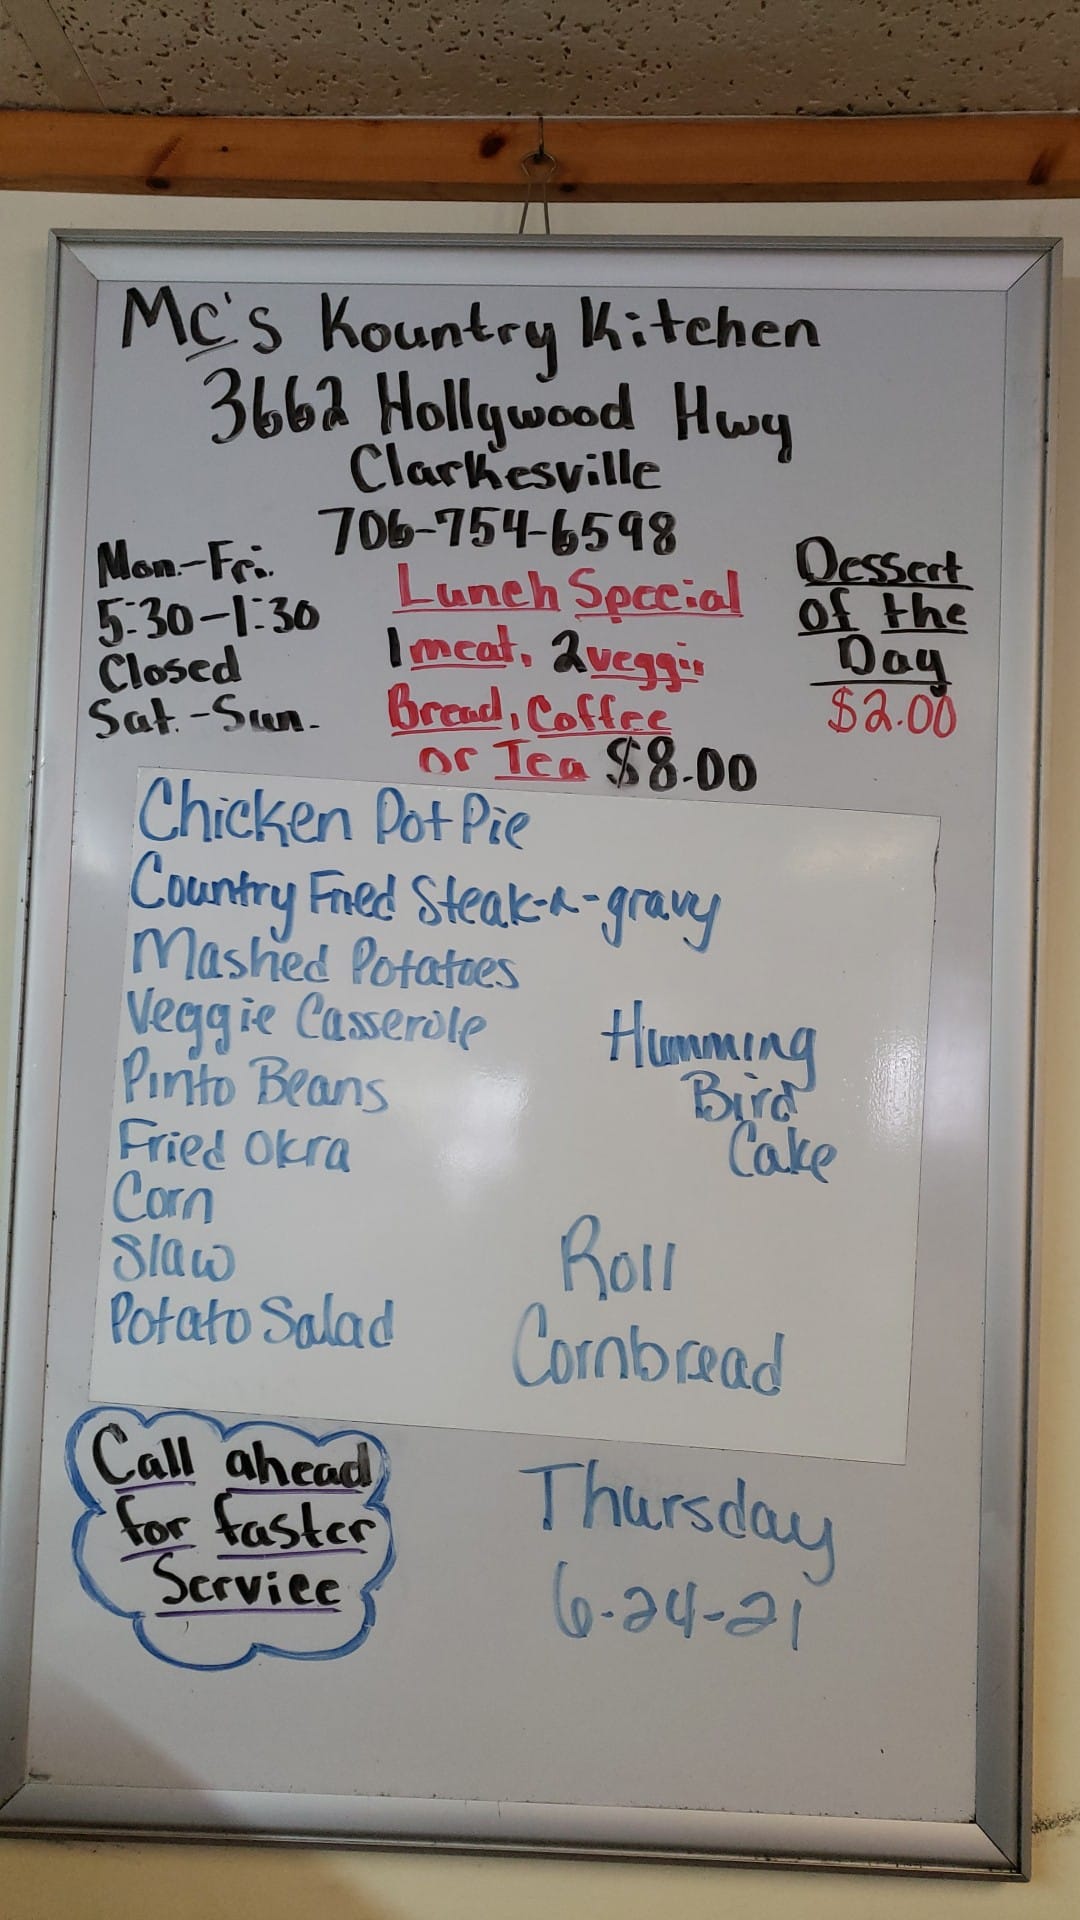 Mc's Kountry Kitchen
3662 Hollywood Hwy
Clarkesville
706-754-6598
Mon.-Fri.
5:30-1:30
Closed
Sat.-Sun.
Lunch Special
1 meat, 2 veggis
Bread, Coffee
or Tea $8.00
Dessert
of the
Day
$2.00
Chicken Pot Pie
Country Fried Steak-n-gravy
Mashed Potatoes
Veggie Casserole
Pinto Beans
Fried Okra
Corn
Slaw
Potato Salad
Humming
Bird
Cake
Roll
Cornbread
Call ahead
for faster
Service
Thursday
6-24-21